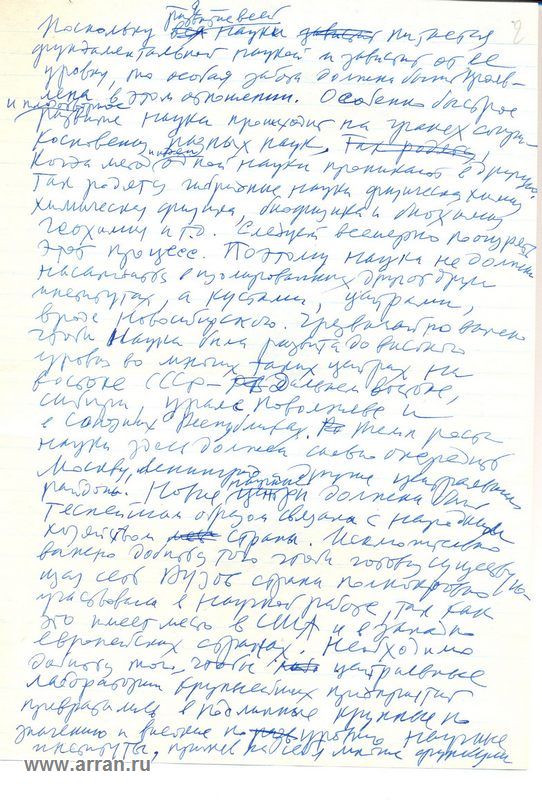 2
развитие всей
Поскольку вся наука зависит питается
фундаментальной наукой и зависит от ее
уровня, то особая забота должна быть прояв-
лена в этом отношении. Особенно быстрое
и плодотворное
развитие науки происходит на гранях
косновения разных наук. Так родятся
Когда методы одной науки проникают в другую.
Так родятся гибридные науки физическая химия,
химическая физика, биофизика и биохимия
геохимия и т.д. Следует всемерно поощрять
этот процесс. Поэтому наука не должна
насаждаться в изолированных друг от друга
институтах, а кустами, центрами,
вроде Новосибирского. Чрезвычайно важно
чтобы наука была развита до высокого
уровня во многих таких центрах на
востоке СССР – на Дальнем востоке,
Сибири Урале Поволжье и
в союзных республиках. Темп роста
науки здесь должен опередить
Москву, Ленинград и другие центральные
научные
районы. Новые центры должны быть
теснейшим образом связаны с народным
хозяйством страны. Исключительно
важно добиться того чтобы существую-
щая сеть ВУЗов страны полнокровно
участвовала в научной работе, так как
это имеет место в США и в западно
европейских странах. Необходимо
добиться того, чтобы центральные
лаборатории крупнейших предприятий
превратились в подлинные крупные по
значению и высокие по уровню научные
институты, приняв на себя многие функции
www.arran.ru